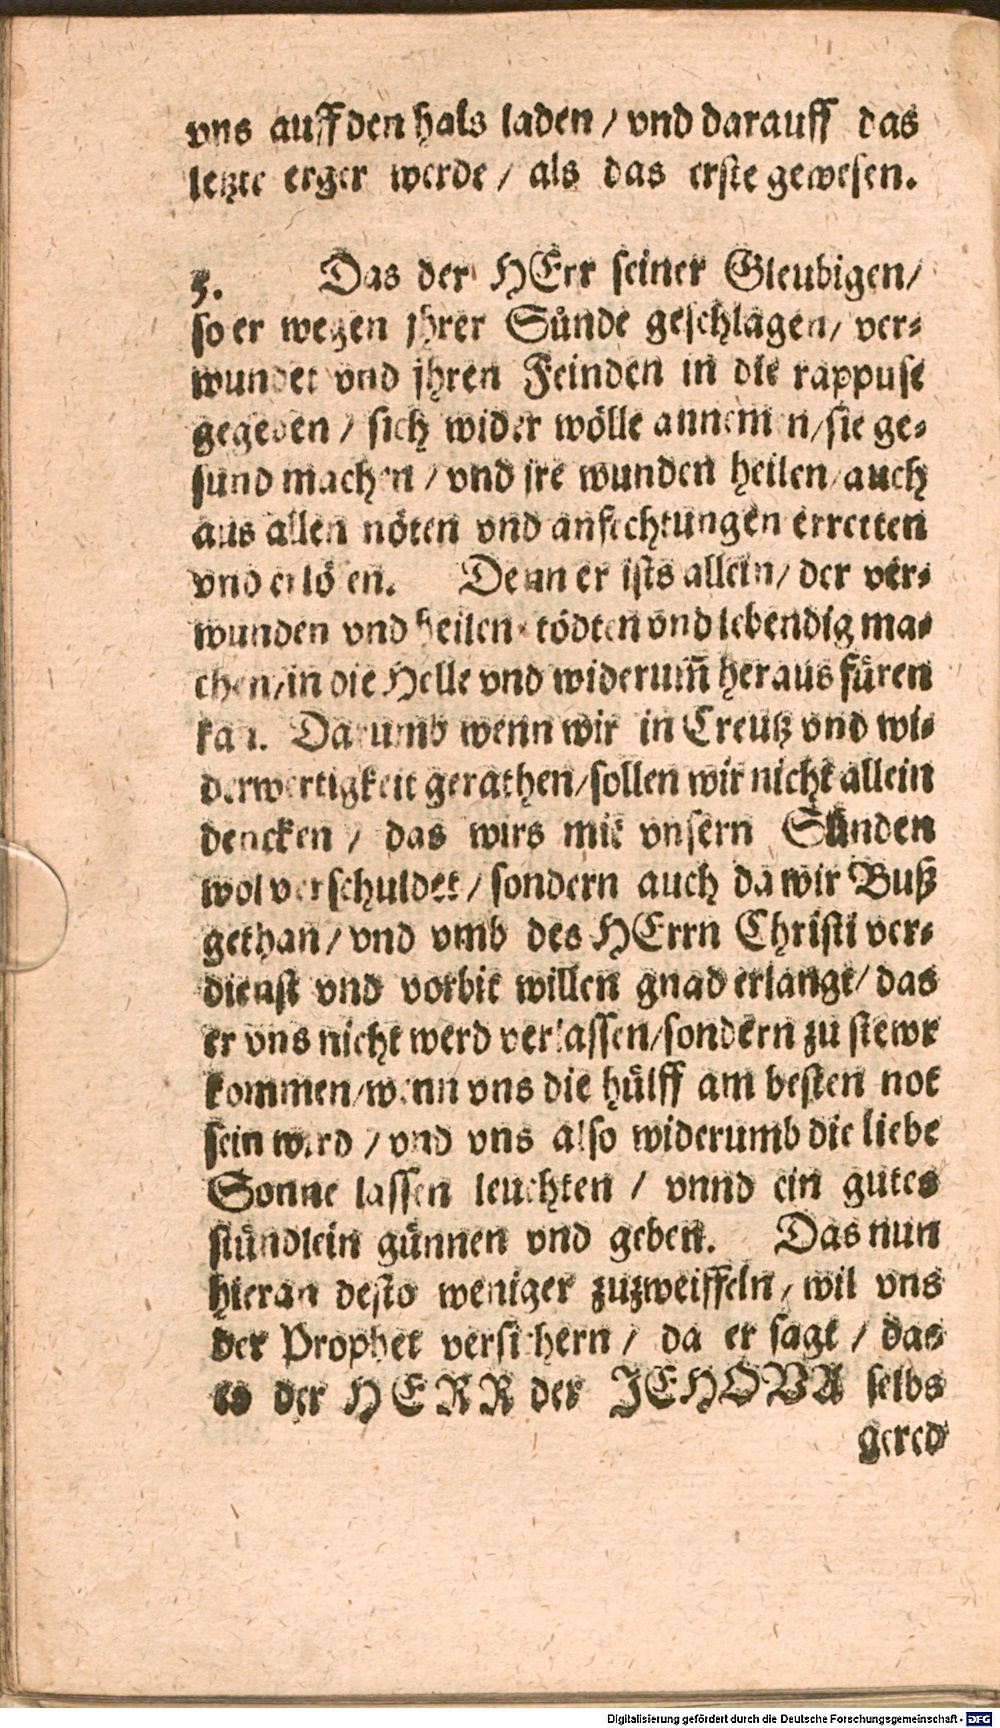 vns auff den hals laden / vnd darauff das
letzte erger werde / als das erste gewesen.
5. Das der HErr seiner Gleubigen /
so er wegen jhrer Sünde geschlagen / ver-
wundet vnd jhren Feinden in die rappuse
gegeben / sich wider wölle annemen / sie ge-
sund machen / vnd jre wunden heilen / auch
aus allen nöten vnd anfechtungen erretten
vnd erlösen. Denn er ists allein / der ver-
wunden vnd heilen / tödten vnd lebendig ma-
chen / in die Helle vnd widerum̃ heraus füren
kan. Darumb wenn wir in Creutz vnd wi-
derwertigkeit gerathen / sollen wir nicht allein
dencken / das wirs mit vnsern Sünden
wol verschuldet / sondern auch da wir Buß
gethan / vnd vmb des HErrn Christi ver-
dienst vnd vorbit willen gnad erlangt / das
er vns nicht werd verlassen / sondern zu stewr
kommen / wenn vns die hülff am besten not
sein wird / vnd vns also widerumb die liebe
Sonne lassen leuchten / vnnd ein gutes
stündlein günnen vnd geben. Das nun
hieran desto weniger zuzweiffeln / wil vns
der Prophet versichern / da er sagt / das
es der HERR der JEHOVA selbs
gered
Digitalisierung gefördert durch die Deutsche Forschungsgemeinschaft - DFG